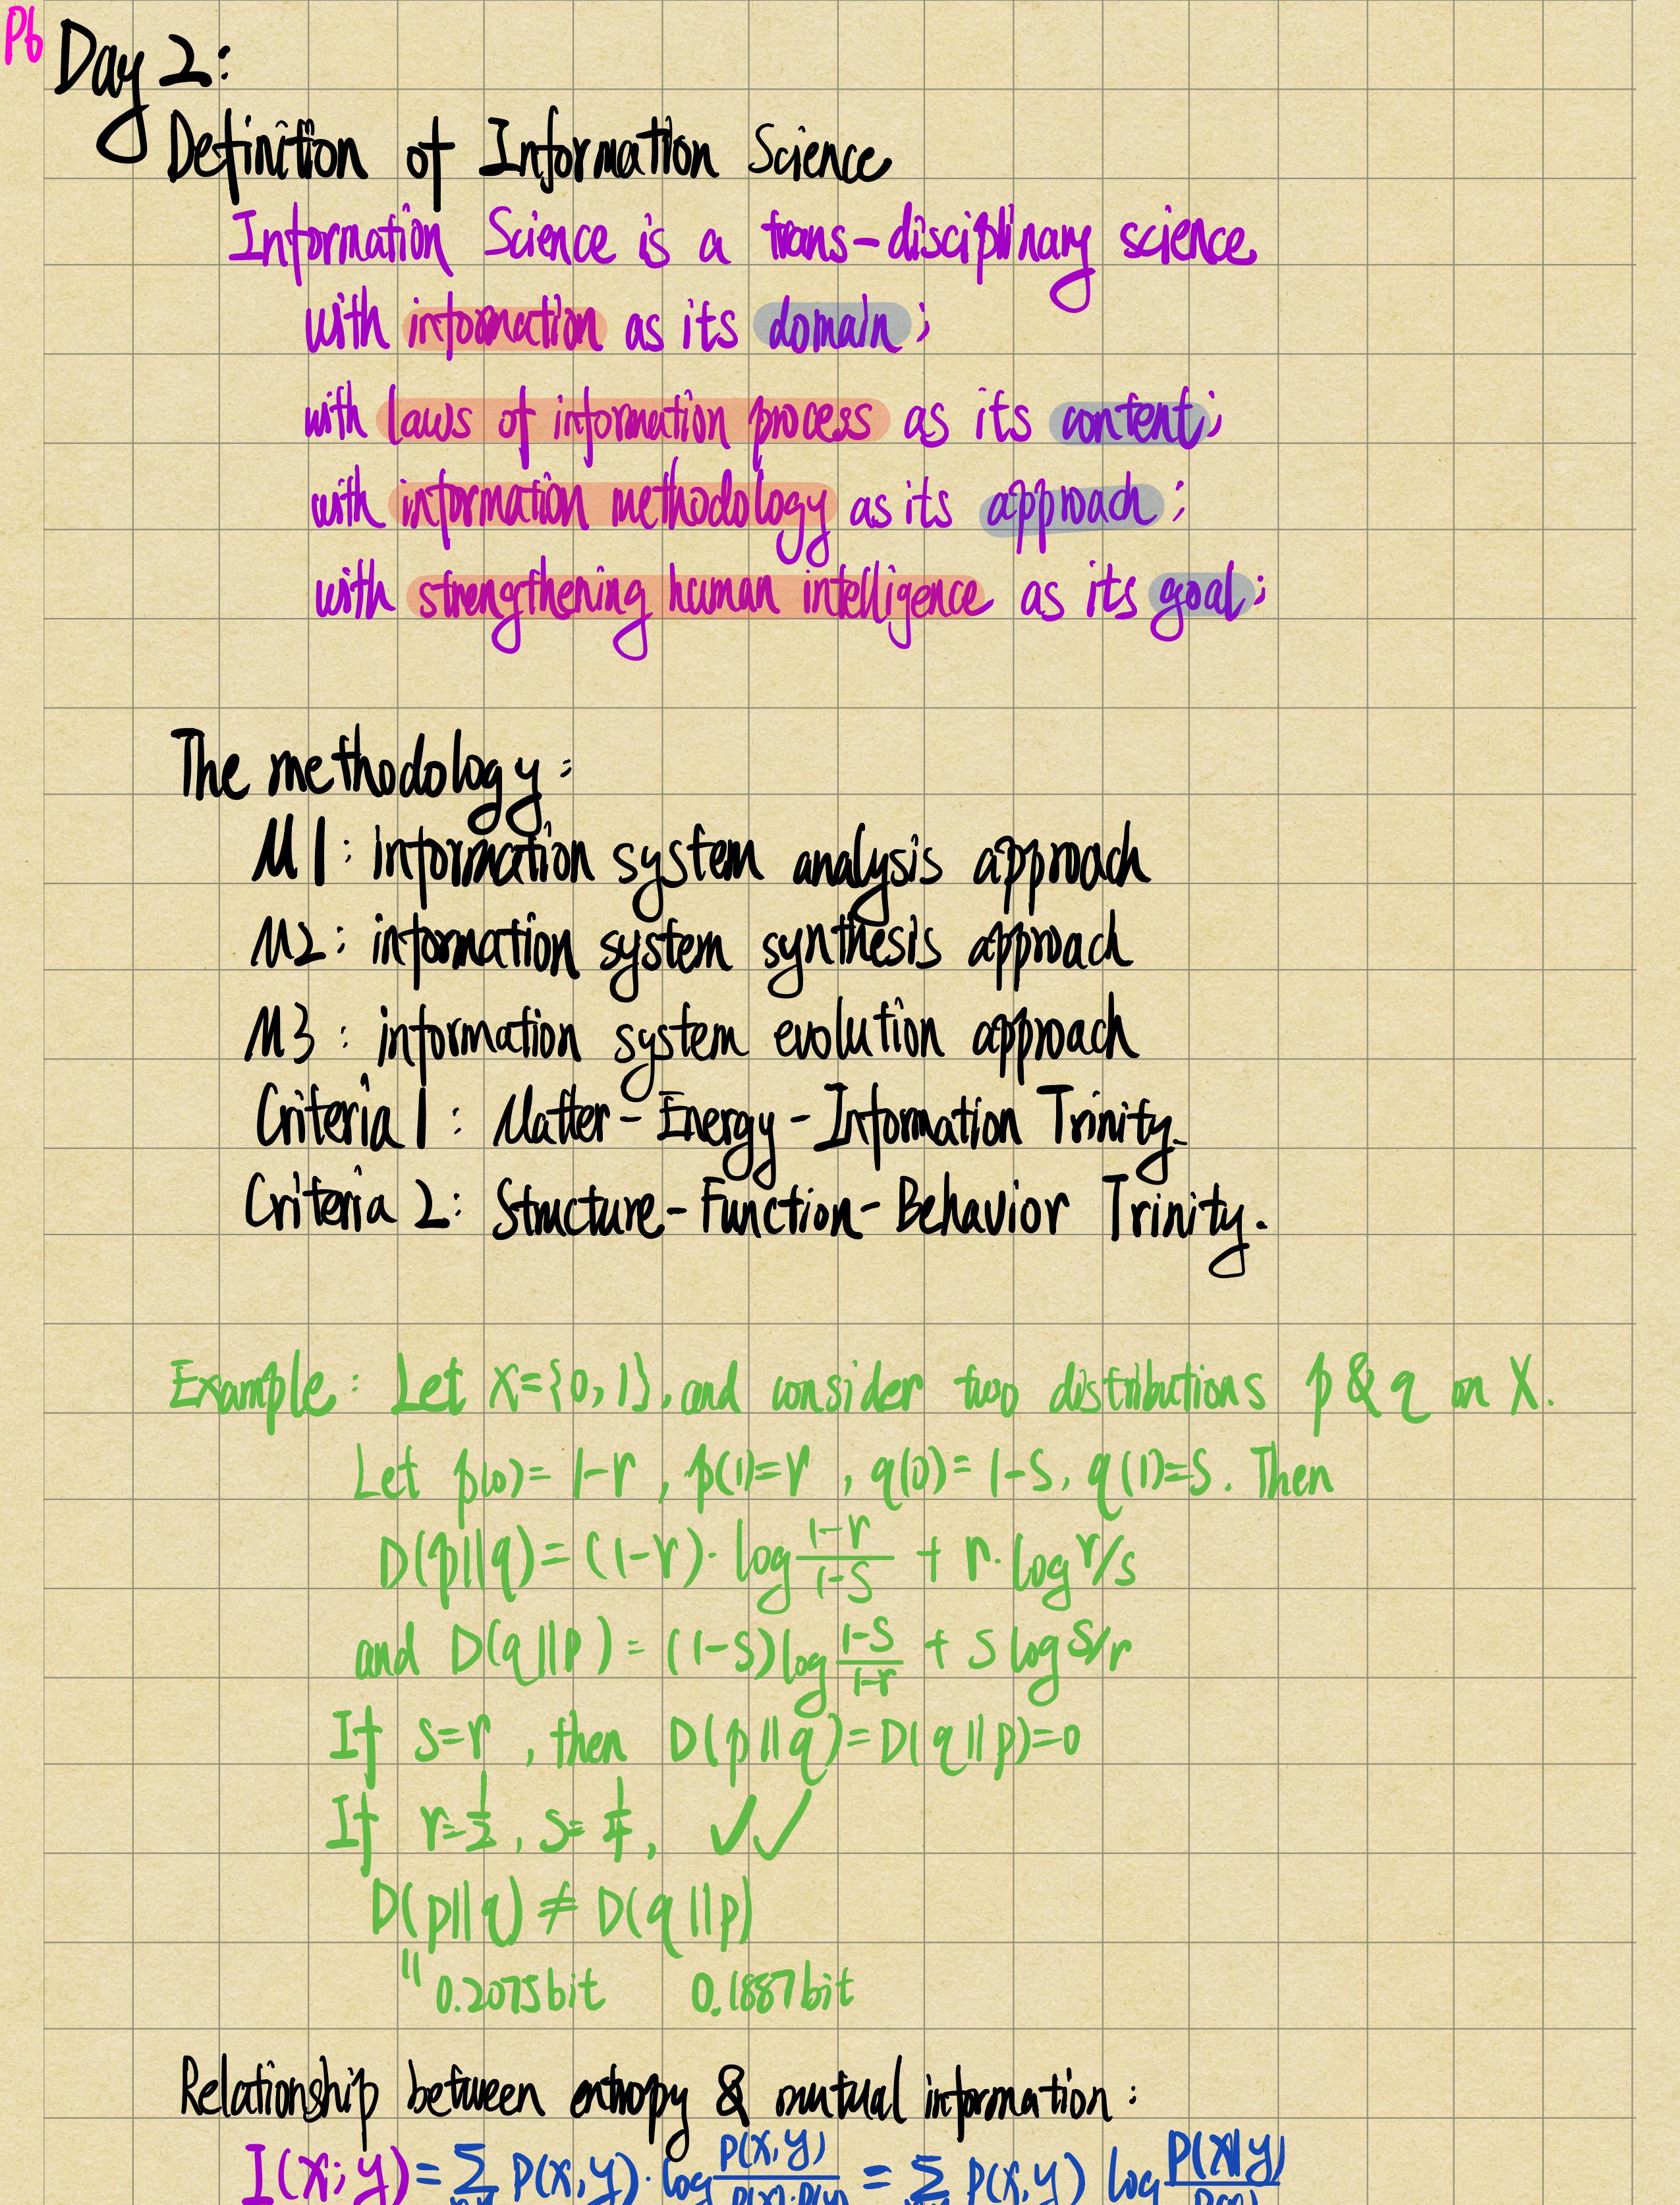 P6
Day 2:
Definition of Information Science
Information Science is a trans-disciplinary science
with information as its domain;
with laws of information process as its content;
with information methodology as its approach;
with strengthening human intelligence as its goal;
The methodology:
M1: information system analysis approach
M2: information system synthesis approach
M3: information system evolution approach
Criteria 1: Matter-Energy-Information Trinity.
Criteria 2: Structure-Function-Behavior Trinity.
Example: Let X={0,1}, and consider two distributions p & q on X.
Let p(0)=1-r, p(1)=r, q(0)=1-s, q(1)=s. Then
D(p||q)=(1-r)·log (1-r)/(1-s) + r·log r/s
and D(q||p)=(1-s)log (1-s)/(1-r) + s log s/r
If s=r, then D(p||q)=D(q||p)=0
If r=1/2, s=1/4, ✓✓
D(p||q) ≠ D(q||p)
" 0.2075bit 0.1887bit
Relationship between entropy & mutual information:
I(x;y)=Σ P(x,y)·log P(x,y)/P(x)·P(y) = Σ P(x,y) log P(x|y)